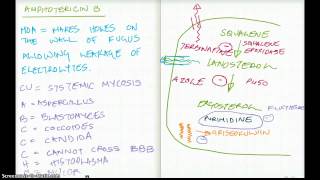 AMPHOTERICIN B
MOA = MAKES HOLES ON
THE WALL OF FUNGUS
ALLOWING LEAKAGE OF
ELECTROLYTES.
CU = SYSTEMIC MYCOSIS
A = ASPERGILLUS
B = BLASTOMYCES
C = COCCOIDES
C = CANDIDA
C = CANNOT CROSS BBB
H = HISTOPLASMA
MUCOR
SQUALENE
TERBINAFINE
SQUALENE
EPOXIDASE
LANOSTEROL
AZOLE
P450
ERGOSTEROL
PYRIMIDINE
GRISEOFULVIN